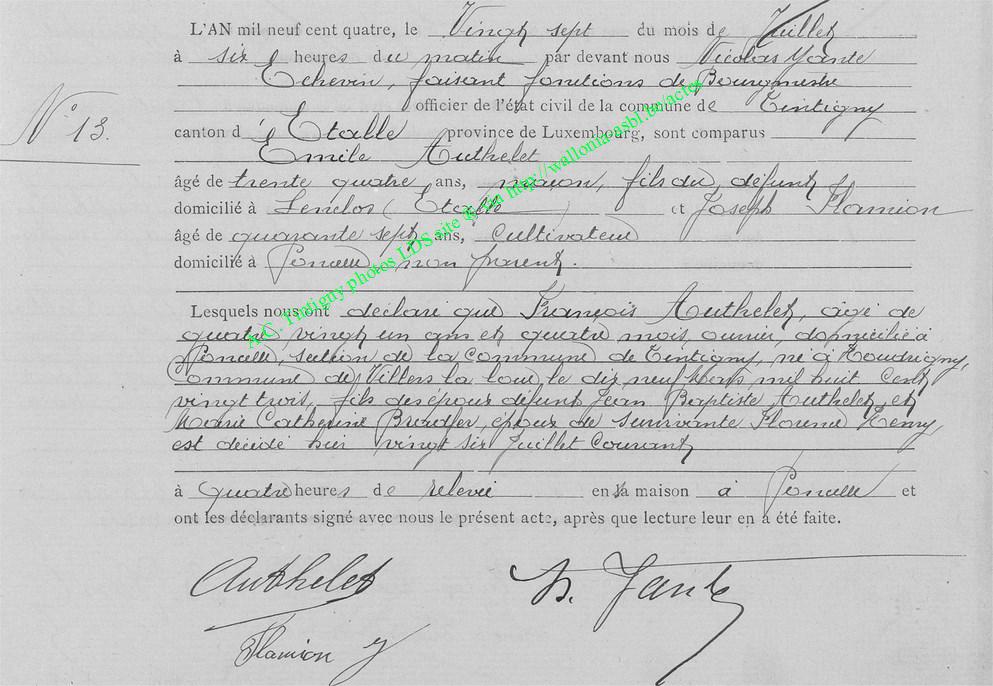 L'AN mil neuf cent quatre, le Vingt sept du mois de Juillet
à six heures du matin par devant nous Nicolas Yante
Echevin, faisant fonctions de Bourgmestre
officier de l'état civil de la commune de Tintigny
N° 13.
canton d'Etalle province de Luxembourg, sont comparus
Emile Authelet
âgé de trente quatre ans, maçon, fils du défunt
domicilié à Lenclos (Etalle) et Joseph Flamion
âgé de quarante sept ans, Cultivateur
domicilié à Poncelle, non parent.
Lesquels nous ont déclaré que François Authelet, âgé de
quatre vingt un ans et quatre mois, ouvrier, domicilié à
Poncelle, section de la Commune de Tintigny, né à Houdrigny,
Commune de Villers la loue, le dix neuf Mars mil huit Cent
vingt trois, fils des époux défunt Jean Baptiste Authelet, et
Marie Catherine époux de survivante Florence Henry,
est décédé hier vingt six Juillet Courant
à quatre heures de relevée en sa maison à Poncelle et
ont les déclarants signé avec nous le présent acte, après que lecture leur en a été faite.
Authelet N. Yante
Flamion J
A.C. Tintigny photos LDS site © via http://wallonia-asbl.be/actes